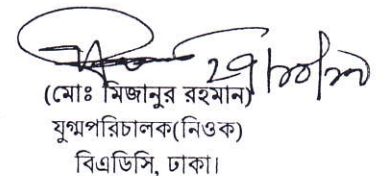 (মোঃ মিজানুর রহমান)
যুগ্মপরিচালক(নিওক)
বিএডিসি, ঢাকা।